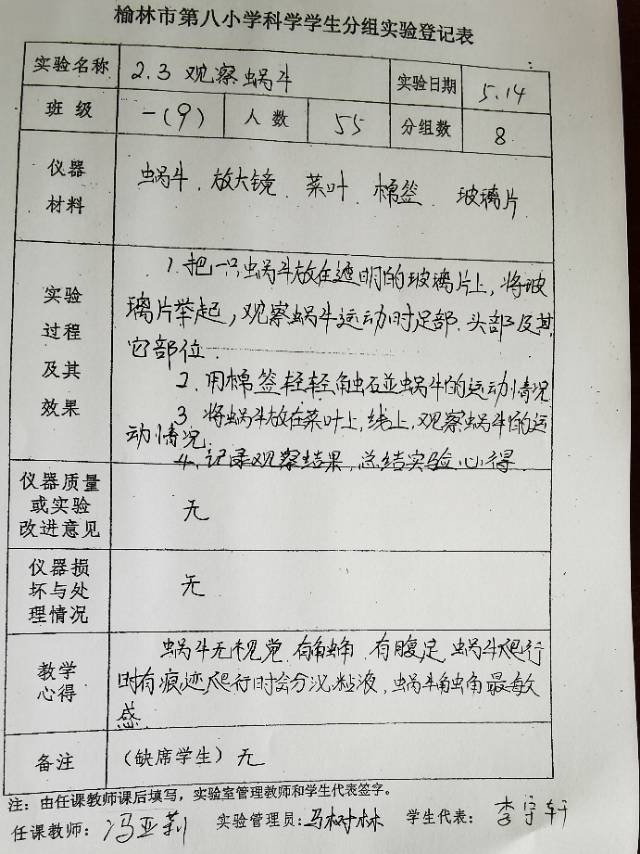 榆林市第八小学科学学生分组实验登记表
实验名称 2.3 观察蜗牛 实验日期 5.14
班级 一(9) 人数 55 分组数 8
仪器材料 蜗牛、放大镜、菜叶、棉签、玻璃片
实验过程及其效果
1. 把一只蜗牛放在透明的玻璃片上,将玻
璃片举起,观察蜗牛运动时足部、头部及其
它部位.
2. 用棉签轻轻触碰蜗牛的运动情况
3 将蜗牛放在菜叶上,线上,观察蜗牛的运
动情况.
4. 记录观察结果,总结实验心得.
仪器质量或实验改进意见 无
仪器损坏与处理情况 无
教学心得
蜗牛无视觉.有触角,有腹足,蜗牛爬行
时有痕迹爬行时会分泌粘液,蜗牛触角最敏
感.
备注 (缺席学生)无
注:由任课教师课后填写,实验室管理教师和学生代表签字。
任课教师:冯亚莉 实验管理员:马树林 学生代表:李宇轩